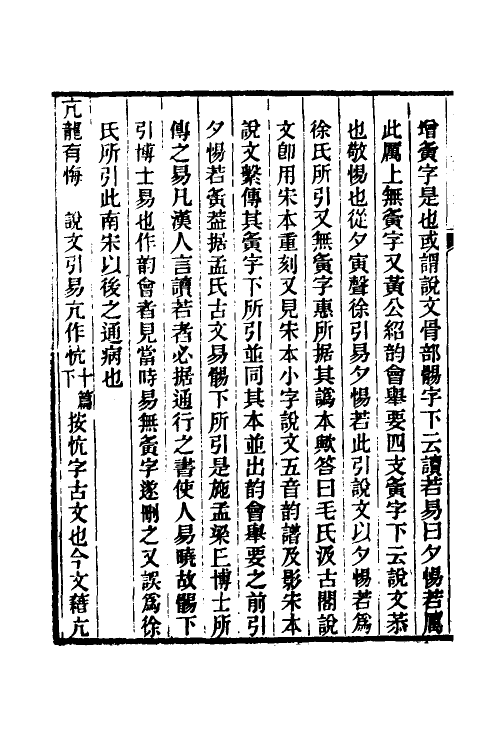 增夤字是也或謂說文骨部䯜字下云讀若易曰夕惕若厲
此厲上無夤字又黃公紹韵會舉要四支夤字下云說文恭
也敬惕也從夕寅聲徐引易夕惕若此引說文以夕惕若爲
徐氏所引又無夤字惠所据其譌本歟答曰毛氏汲古閣說
文卽用宋本重刻又見宋本小字說文五音韵譜及影宋本
說文繫傳其夤字下所引並同其本並出韵會舉要之前引
夕惕若夤蓋据孟氏古文易䯜下所引是施孟梁丘博士所
傳之易凡漢人言讀若者必据通行之書使人易曉故䯜下
引博士易也作韵會者見當時易無夤字遂刪之又誤爲徐
氏所引此南宋以後之通病也
亢龍有悔 說文引易亢作忼十篇下按忼字古文也今文藉亢